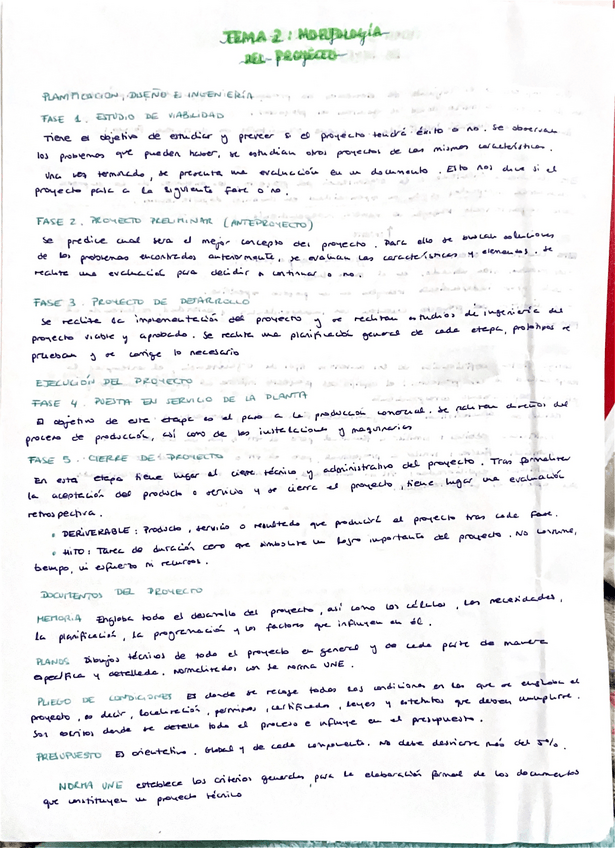 TEMA 2: MORFOLOGÍA
DEL PROYECTO
PLANIFICACIÓN, DISEÑO E INGENIERÍA
FASE 1. ESTUDIO DE VIABILIDAD
Tiene el objetivo de estudiar y preveer si el proyecto tendrá éxito o no. Se observan
los problemas que pueden haber, se estudian otros proyectos de las mismas características.
Una vez terminado, se presenta una evaluación en un documento. Esto nos dice si el
proyecto pasa a la siguiente fase o no.
FASE 2. PROYECTO PRELIMINAR (ANTEPROYECTO)
Se predice cual será el mejor concepto del proyecto. Para ello se buscan soluciones
de los problemas encontrados anteriormente, se evaluan las características y elementos. Se
realiza una evaluación para decidir si continuar o no.
FASE 3. PROYECTO DE DESARROLLO
Se realiza la implementación del proyecto y se realizan estudios de ingeniería del
proyecto viable y aprobado. Se realiza una planificación general de cada etapa, prototipos se
prueban y se corrige lo necesario
EJECUCIÓN DEL PROYECTO
FASE 4. PUESTA EN SERVICIO DE LA PLANTA
El objetivo de esta etapa es el paso a la producción comercial. Se realizan diseños del
proceso de producción, así como de las instalaciones y maquinarias
FASE 5. CIERRE DE PROYECTO
En esta etapa tiene lugar el cierre técnico y administrativo del proyecto. Tras formalizar
la aceptación del producto o servicio y se cierra el proyecto, tiene lugar una evaluación
retrospectiva.
• DERIVERABLE: Producto, servicio o resultado que producirá el proyecto tras cada fase.
• HITO: Tarea de duración cero que simboliza un logro importante del proyecto. No consume,
tiempo, ni esfuerzo ni recursos.
DOCUMENTOS DEL PROYECTO
MEMORIA Engloba todo el desarrollo del proyecto, así como los cálculos, las necesidades,
la planificación, la programación y los factores que influyen en él.
PLANOS Dibujos técnicos de todo el proyecto en general y de cada parte de manera
específica y detallada. Normalizados con la norma UNE.
PLIEGO DE CONDICIONES Es donde se recoge todas las condiciones en las que se engloba el
proyecto, es decir, localización, permisos, certificados, leyes y estatutos que deben cumplirse.
Son escritos donde se detalla todo el proceso e influye en el presupuesto.
PRESUPUESTO Es orientativo. Global y de cada componente. No debe desviarse más del 5%.
NORMA UNE establece los criterios generales para la elaboración formal de los documentos
que constituyen un proyecto técnico